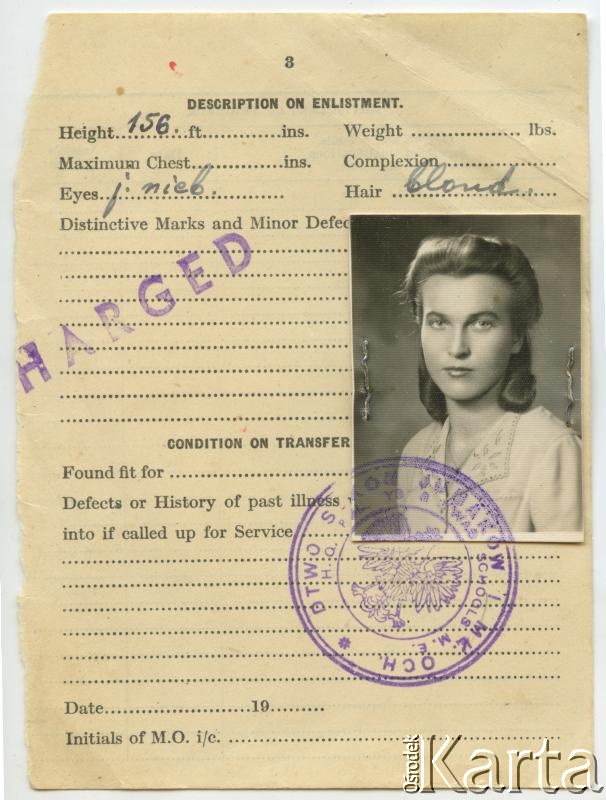 3
DESCRIPTION ON ENLISTMENT.
Height 156. ft. ins. Weight lbs.
Maximum Chest ins. Complexion
Eyes j. nieb. Hair blond.
Distinctive Marks and Minor Defec
HARGED
CONDITION ON TRANSFER
Found fit for
Defects or History of past illness
into if called up for Service
DTWO SZKÓŁ JUNAKÓW I MŁ. OCH.
H.Q. SCHOOLS M.E.
Date 19
Initials of M.O. i/c.
Ośrodek Karta